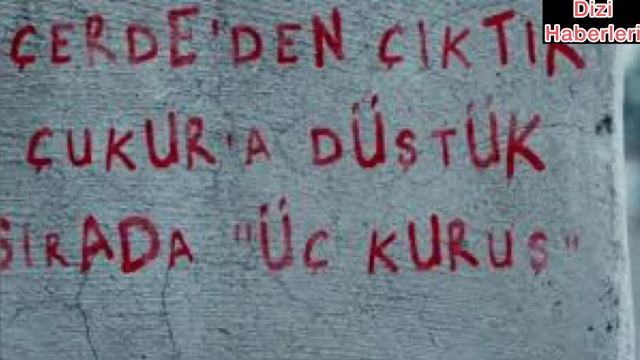 ÇERDE'DEN ÇIKTIK
ÇUKUR'A DÜŞTÜK
SIRADA "ÜÇ KURUŞ"
Dizi
Haberleri